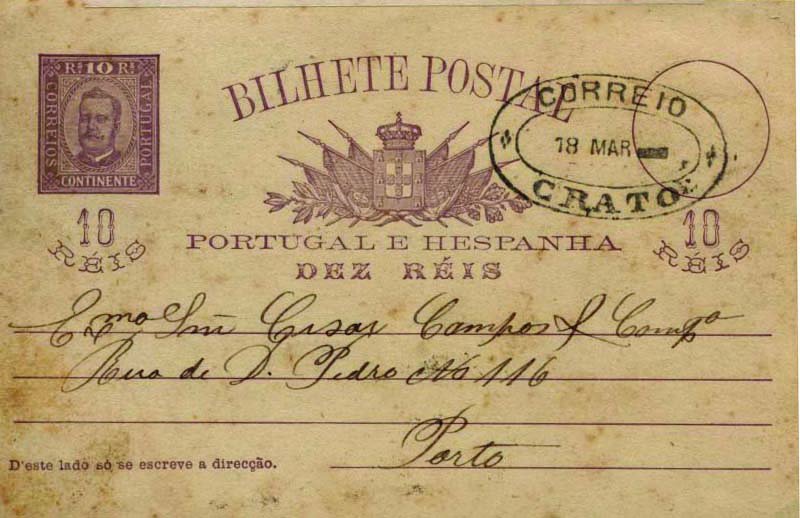 Rs 10 Rs
CORREIOS
PORTUGAL
CONTINENTE
BILHETE POSTAL
CORREIO
18 MAR
CRATO
10
RÉIS
10
RÉIS
PORTUGAL E HESPANHA
DEZ RÉIS
Exmo Snr Cesar Campos & Compa
Rua de D. Pedro No 116
Porto
D'este lado só se escreve a direcção.